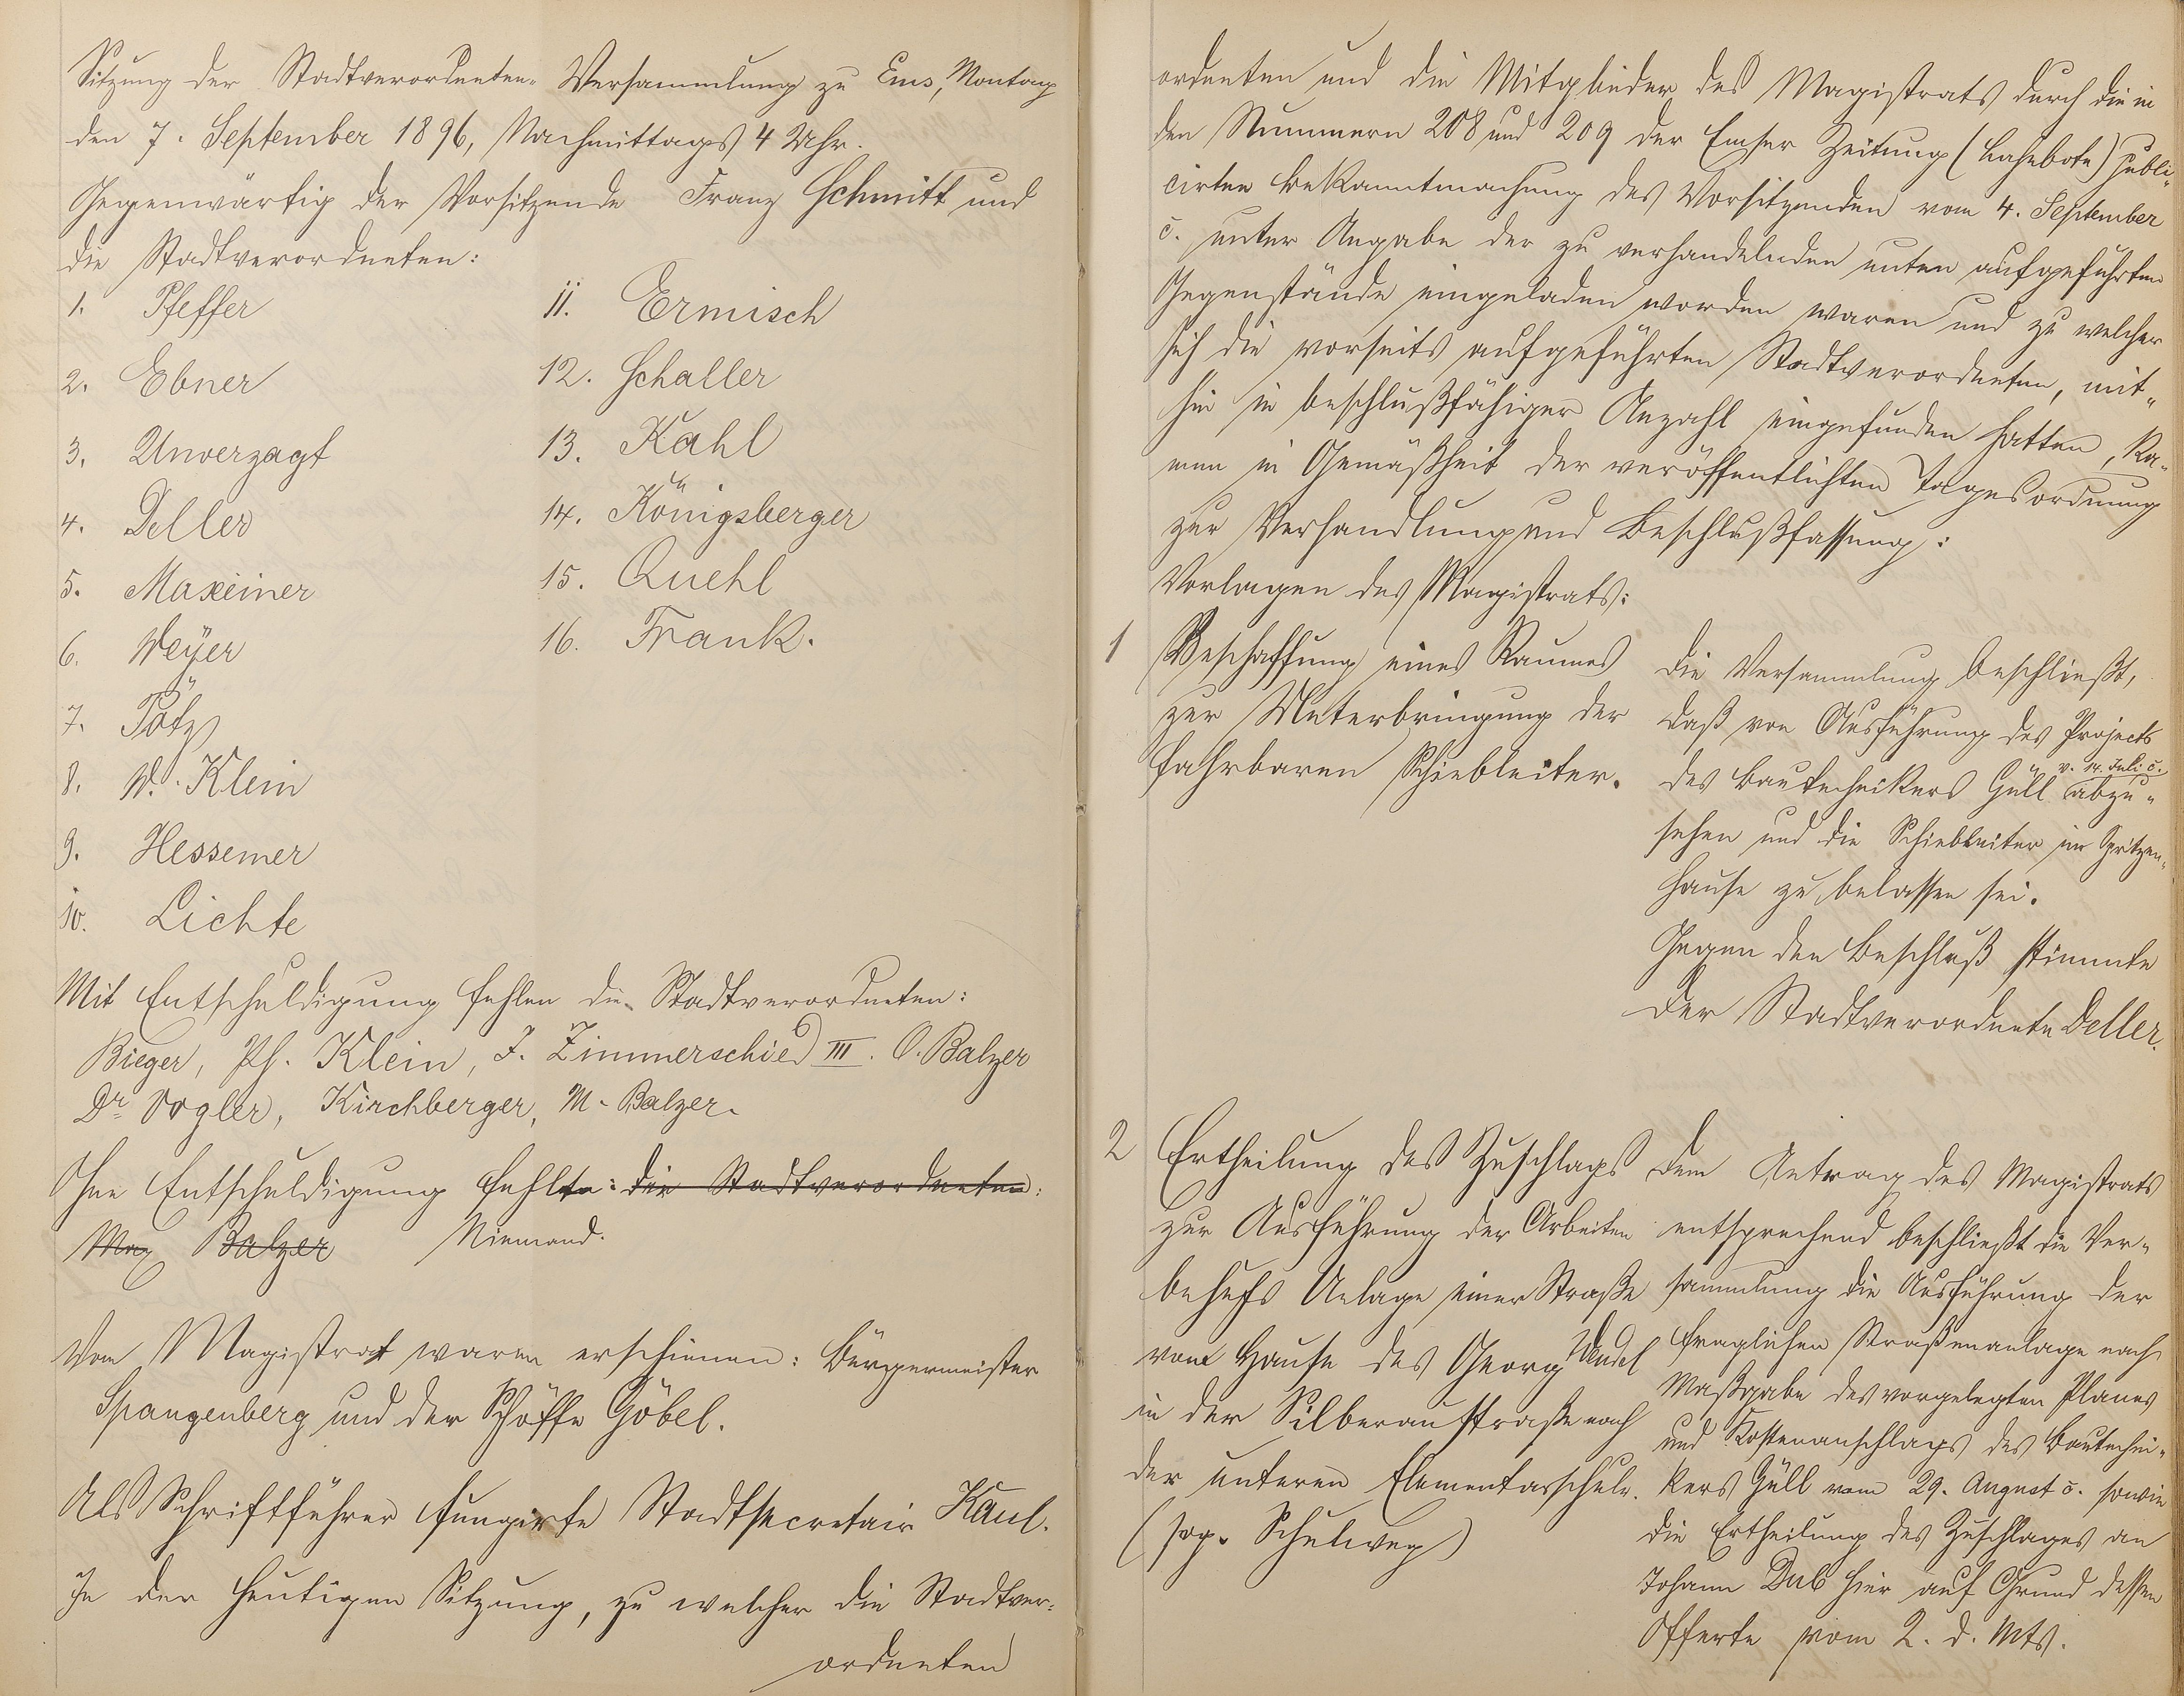 Sitzung der Stadtverordneten- Versammlung zu Ems, Montag
den 7. September 1896, Nachmittags 4 Uhr.
Gegenwärtig der Vorsitzende Franz Schmitt und
die Stadtverordneten:
1. Pfeffer
2. Ebner
3. Unverzagt
4. Deller
5. Maxeiner
6. Weÿer
7. Pötz
8. W. Klein
9. Hessemer
10. Lichte
11. Ermisch
12. Schaller
13. Kahl
14. Königsberger
15. Quehl
16. Frank.
Mit Entschuldigung fehlen die Stadtverordneten:
Bieger, Ph. Klein, J. Zimmerschied III. O. Balzer
Dr Vogler, Kirchberger, M. Balzer.
Ohne Entschuldigung fehlte: die Stadtverordneten:
Max Balzer Niemand.
Vom Magistrat waren erschienen: Bürgermeister
Spangenberg und der Schöffe Göbel.
Als Schriftführer fungirte Stadtsecretair Kaul.
In der heutigen Sitzung, zu welcher die Stadtver-
ordneten
ordneten und die Mitglieder des Magistrats durch die in
den Nummern 208 und 209 der Emser Zeitung (Lahnbote) publi-
cirten Bekanntmachung des Vorsitzenden vom 4. September
c. unter Angabe der zu verhandelnden unten aufgeführten
Gegenstände eingeladen worden waren und zu welcher
sich die vorseits aufgeführten Stadtverordneten, mit-
hin in beschlußfähiger Anzahl eingefunden hatten, ka-
men in Gemäßheit der veröffentlichten Tagesordnung
zur Verhandlung und Beschlußfassung:
Vorlagen des Magistrats:
1 Beschaffung eines Raumes
zur Unterbringung der
fahrbaren Schiebleiter.
Die Versammlung beschließt,
daß von Ausführung des Projects
des Bautechnikers Güll v. 14. Juli c. abzu-
sehen und die Schiebleiter im Spritzen-
hause zu belassen sei.
Gegen den Beschluß stimmte
der Stadtverordnete Deller.
2 Ertheilung des Zuschlags
zur Ausführung der Arbeiten
behufs Anlage einer Straße
vom Hause des Georg
in der Silberaustraße nach
der unteren Elementarschule.
(sog. Schulweg)
Dem Antrag des Magistrats
entsprechend beschließt die Ver-
sammlung die Ausführung der
fraglichen Straßenanlage nach
Maßgabe des vorgelegten Planes
und Kostenanschlags des Bautechni-
kers Güll vom 29. August c. sowie
die Ertheilung des Zuschlages an
Johann Dub hier auf Grund dessen
Offerte vom 2. d. Mts.